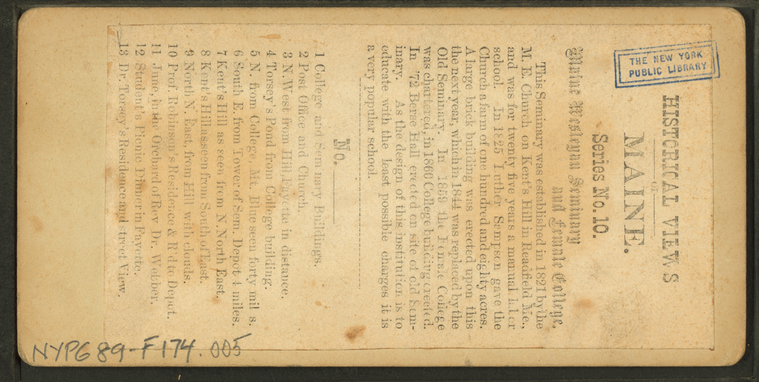 HISTORICAL VIEWS
OF
MAINE.
Series No. 10.
Maine Wesleyan Seminary
and Female College.
This Seminary was established in 1821 by the
M. E. Church on Kent's Hill in Readfield Me.,
and was for twenty five years a manual labor
school. In 1825 Luther Sampson gave the
Church a farm of one hundred and eighty acres.
A large brick building was erected upon this
the next year, which in 1844 was replaced by the
Old Seminary. In 1859 the Female College
was chartered, in 1860 College building erected.
In '72 Berse Hall erected on site of old Sem-
inary. As the design of this institution is to
educate with the least possible charges it is
a very popular school.
No.
1 College and Seminary Buildings.
2 Post Office and Church.
3 N. West from Hill, Fayette in distance.
4 Torsey's Pond from College building.
5 N. from College, Mt. Blue seen forty mil s.
6 South E. from Tower of Sem. Depot 4 miles.
7 Kent's Hill as seen from N. North East.
8 Kent's Hill as seen from South of East.
9 North N. East, from Hill with clouds.
10 Prof. Robinson's Residence & R'd to Depot.
11 June, in the Orchard of Rev. Dr. Webber.
12 Student's Picnic Dinner in Fayette.
13 Dr. Torsey's Residence and street View.
THE NEW YORK
PUBLIC LIBRARY
NYPG89-F174.005